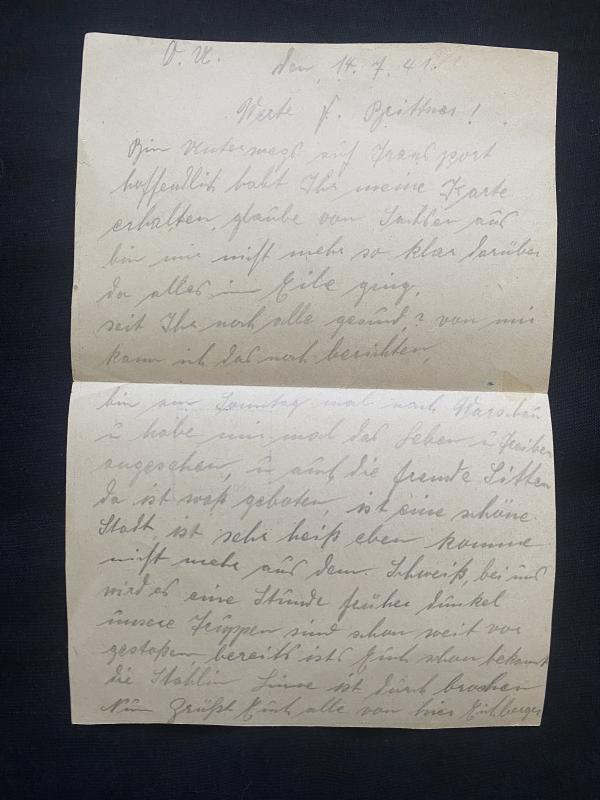 O. U. den, 14. 7. 41.
Werte F. Brittner!
Bin unterwegs auf Transport
hoffentlich habt Ihr meine Karte
erhalten, glaube von Sachsen aus
bin mir nicht mehr so klar darüber
da alles in Eile ging.
seit Ihr noch alle gesund,? von mir
kann ich das noch berichten,
bin am Sonntag mal nach Warschau
u habe mir mal das Leben u Treiben
angesehen, u auch die fremde Sitten
da ist waß geboten, ist eine schöne
Stadt, ist sehr heiß eben komme
nicht mehr aus dem Schweiß, bei uns
wird es eine Stunde früher dunkel
unsere Truppen sind schon weit vor
gestoßen bereits ists Euch schon bekannt
die Stahlin Linie ist durch brochen
Nun Grüßt Euch alle von hier